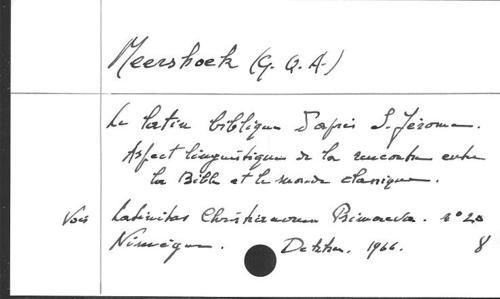 Meershoek (G. Q. A.)
Le latin biblique d'après S. Jérome.
Aspect linguistique de la rencontre entre
la Bible et le monde classique.
Voir Latinitas Christianorum Primaeva. n° 20
Nimègue. Dekker. 1966. 8